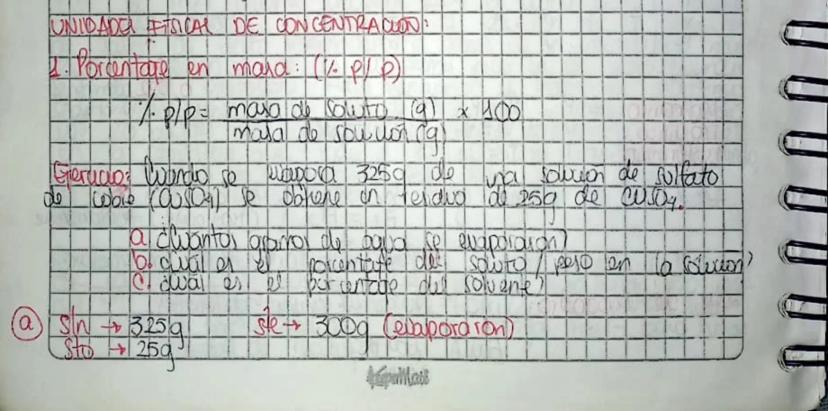 UNIDADES FISICAS DE CONCENTRACION:
1. Porcentage en masa: (% p/p)
% p/p = masa de soluto (g) x 100
masa de solucion (g)
Ejercicio: Cuando se evapora 325g de una solucion de sulfato
de cobre (CuSO4) se obtiene un residuo de 25g de CuSO4.
a. ¿Cuantos gramos de agua se evaporaron?
b. cual es el porcentaje del soluto / peso en la solucion?
c. ¿cual es el porcentage del solvente?
a sln → 325g ste → 300g (evaporaron)
sto → 25g